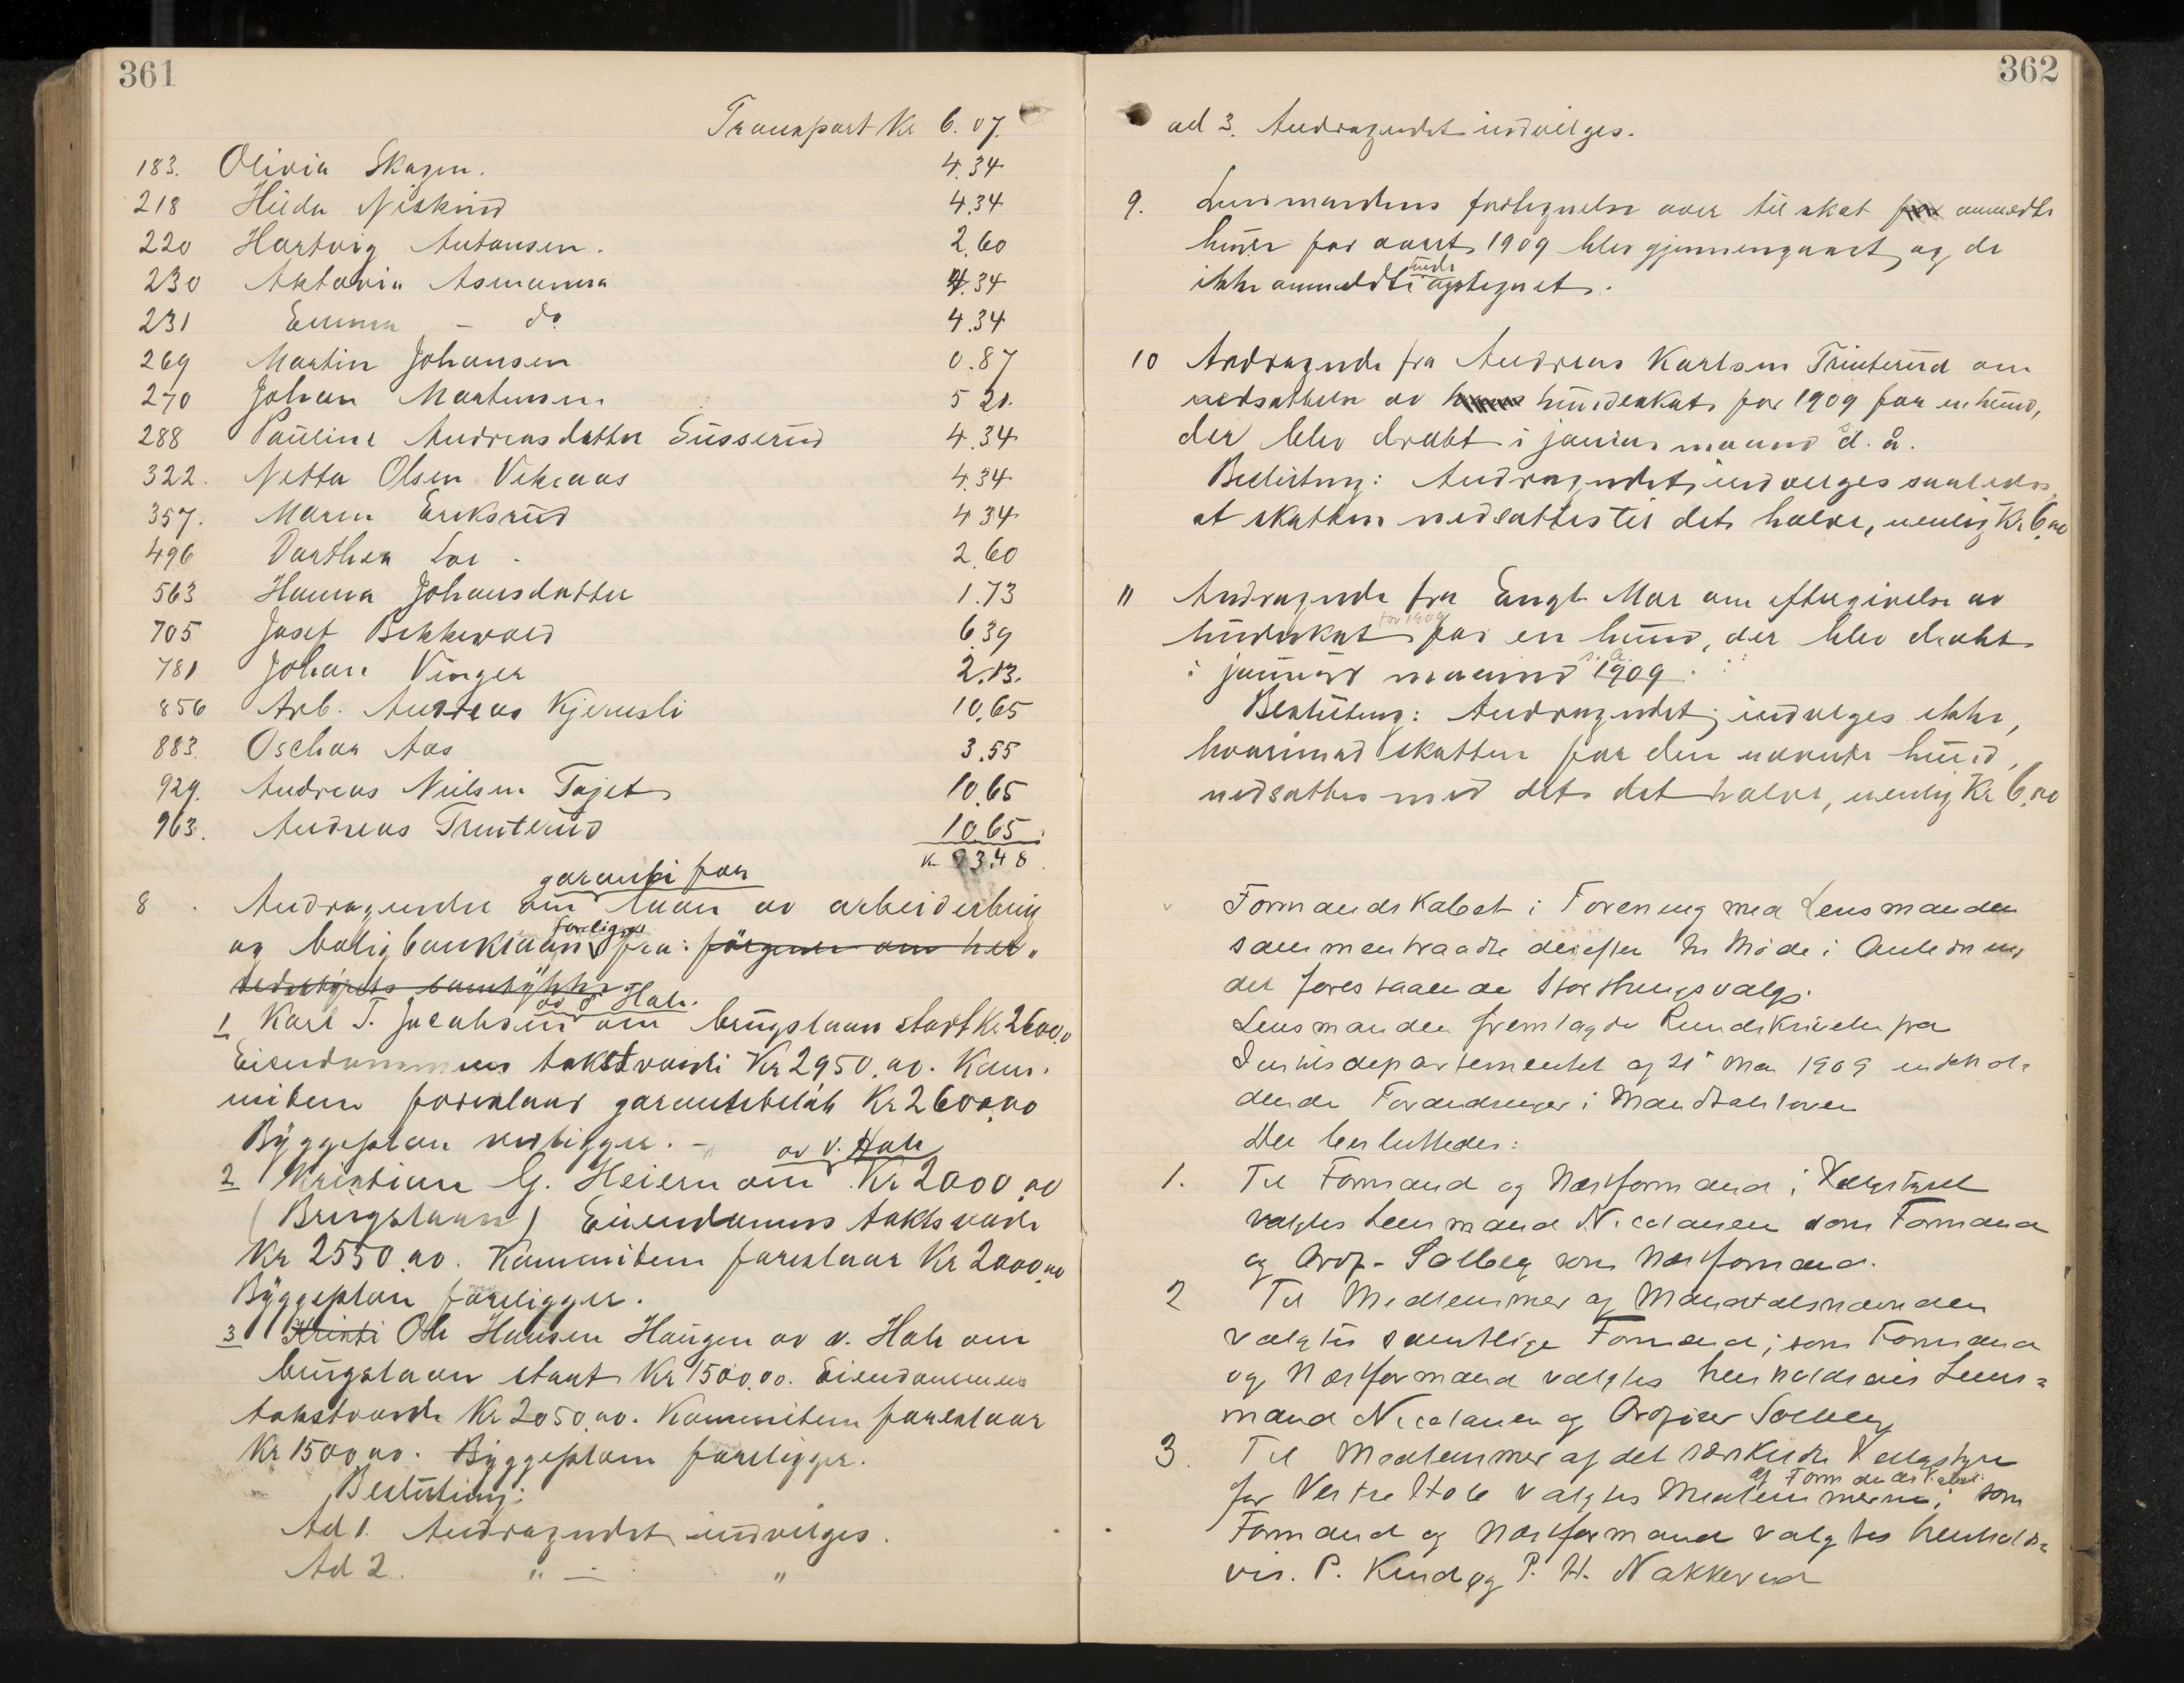 361
Transport Kr 6.07.
183. Olivia Skagen. 4.34
218 Hilda Niskind 4.34
220 Hartvig Antonsen. 2.60
230 Aktavia Asmanna 4.34
231 Emma - do 4.34
269 Martin Johansen 0.87
270 Johan Martinsen 5 21.
288 Pauline Andreasdatter Susserud 4.34
322. Netta Olsen Vekraas 4.34
357. Maren Eriksrud 4 34
496 Dorthea Loe - 2.60
563 Hanna Johansdatter 1.73
705 Josef Bekkevold 6.39
781 Johan Vinger 2.13.
856 Arb. Andreas Kjemsli 10.65
883. Oschar Aas 3.55
929. Andreas Nielsen Tajet 10.65
963. Andreas Trinterud 10.65
Kr 93.48
garanti for
8 Andragende om laan av arbeiderbrug
foreligger
og boligbanklaan fra: förgiven om her„
redsstyrets samtykke
av v. Hole.
1 Karl T. Jacobsen om brugslaan stort Kr. 2600.00
Eiendommens takstværdi Kr 2950.00. Kom-
miteen foreslaar garantibeløb Kr 2600.00
Byggeplan vedligger. -
av v. Hole
2 Kristian G. Heiern om Kr 2000.00
(Brugslaan) Eiendommens takstværdi
Kr 2550.00. Kommiteen foreslaar Kr 2000.00
Byggeplan foreligger.
3 Kristi Ole Hansen Haugen av v. Hole om
brugslaan stort Kr 1500.00. Eiendommens
takstværdi Kr 2050.00. Kommiteen foreslaar
Kr 1500.00. Byggeplan foreligger.
Beslutning:
Ad 1. Andragendet indvilges.
Ad 2. „ - „
362
ad 3. Andragendet indvilges.
9. Lensmandens fortegnelse over til skat for anmeldte
hunde for aaret 1909 blev gjennemgaaet og de
ikke anmeldte hunde optegnet.
10 Andragende fra Andreas Karlsen Trinterud om
nedsættelse av hundeskat for 1909 for en hund,
der blev dræbt i januar maaned d. å.
Beslutning: Andragendet indvilges saaledes
at skatten nedsættes til det halve, nemlig Kr 6.00
11 Andragende fra Engb. Moe om eftergivelse av
for 1909
hundeskat for en hund, der blev dræbt
i januar maaned 1909.
Beslutning: Andragendet indvilges ikke,
hvorimod skatten for den nævnte hund,
nedsættes med det det halve, nemlig Kr 6.00
Formandskabet i Forening med Lensmanden
sammentraadte derefter til Møde i Anledning
det forestaaende Storthingsvalg.
Lensmanden fremlagde Rundskrivelse fra
Justisdepartementet af 21 Mai 1909 indehol-
dende Forandringer i Mandtalsloven
Der besluttedes:
1. Til Formand og Næstformand i Valgstyret
valgtes Lensmand Nicolausen som Formand
og Ordf. Solberg som Næstformand.
2 Til Medlemmer af Mandtalsnævnden
valgtes samtlige Formænd; som Formand
og Næstformand valgtes henholdsvis Lens=
mand Nicolausen og Ordfører Solberg
3. Til Medlemmer af det særskilte Valgstyre
af Formandskabet
for Vestre Hole valgtes Medlemmerne; som
Formand og Næstformand valgtes henholds=
vis. P. Kind og P. H. Nakkerud